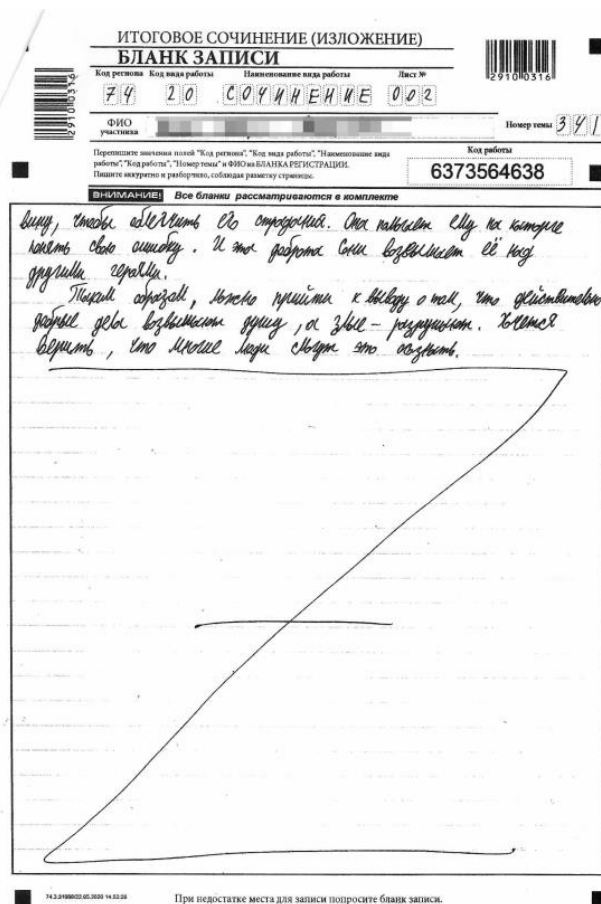 ИТОГОВОЕ СОЧИНЕНИЕ (ИЗЛОЖЕНИЕ)
БЛАНК ЗАПИСИ
Код региона Код вида работы Наименование вида работы Лист №
74 20 СОЧИНЕНИЕ 002
2910 0316
2910 0316
ФИО участника
Номер темы 341
Перепишите значения полей "Код региона", "Код вида работы", "Наименование вида
работы", "Код работы", "Номер темы" и ФИО из БЛАНКА РЕГИСТРАЦИИ.
Пишите аккуратно и разборчиво, соблюдая разметку страницы.
Код работы
6373564638
ВНИМАНИЕ! Все бланки рассматриваются в комплекте
вину, чтобы облегчить его страдания. Она помогает ему на каторге
понять свою ошибку. И эта доброта Сони возвышает её над
другими героями.
Таким образом, можно прийти к выводу о том, что действительно
добрые дела возвышают душу, а злые – разрушают. Хочется
верить, что многие люди смогут это осознать.
При недостатке места для записи попросите бланк записи.